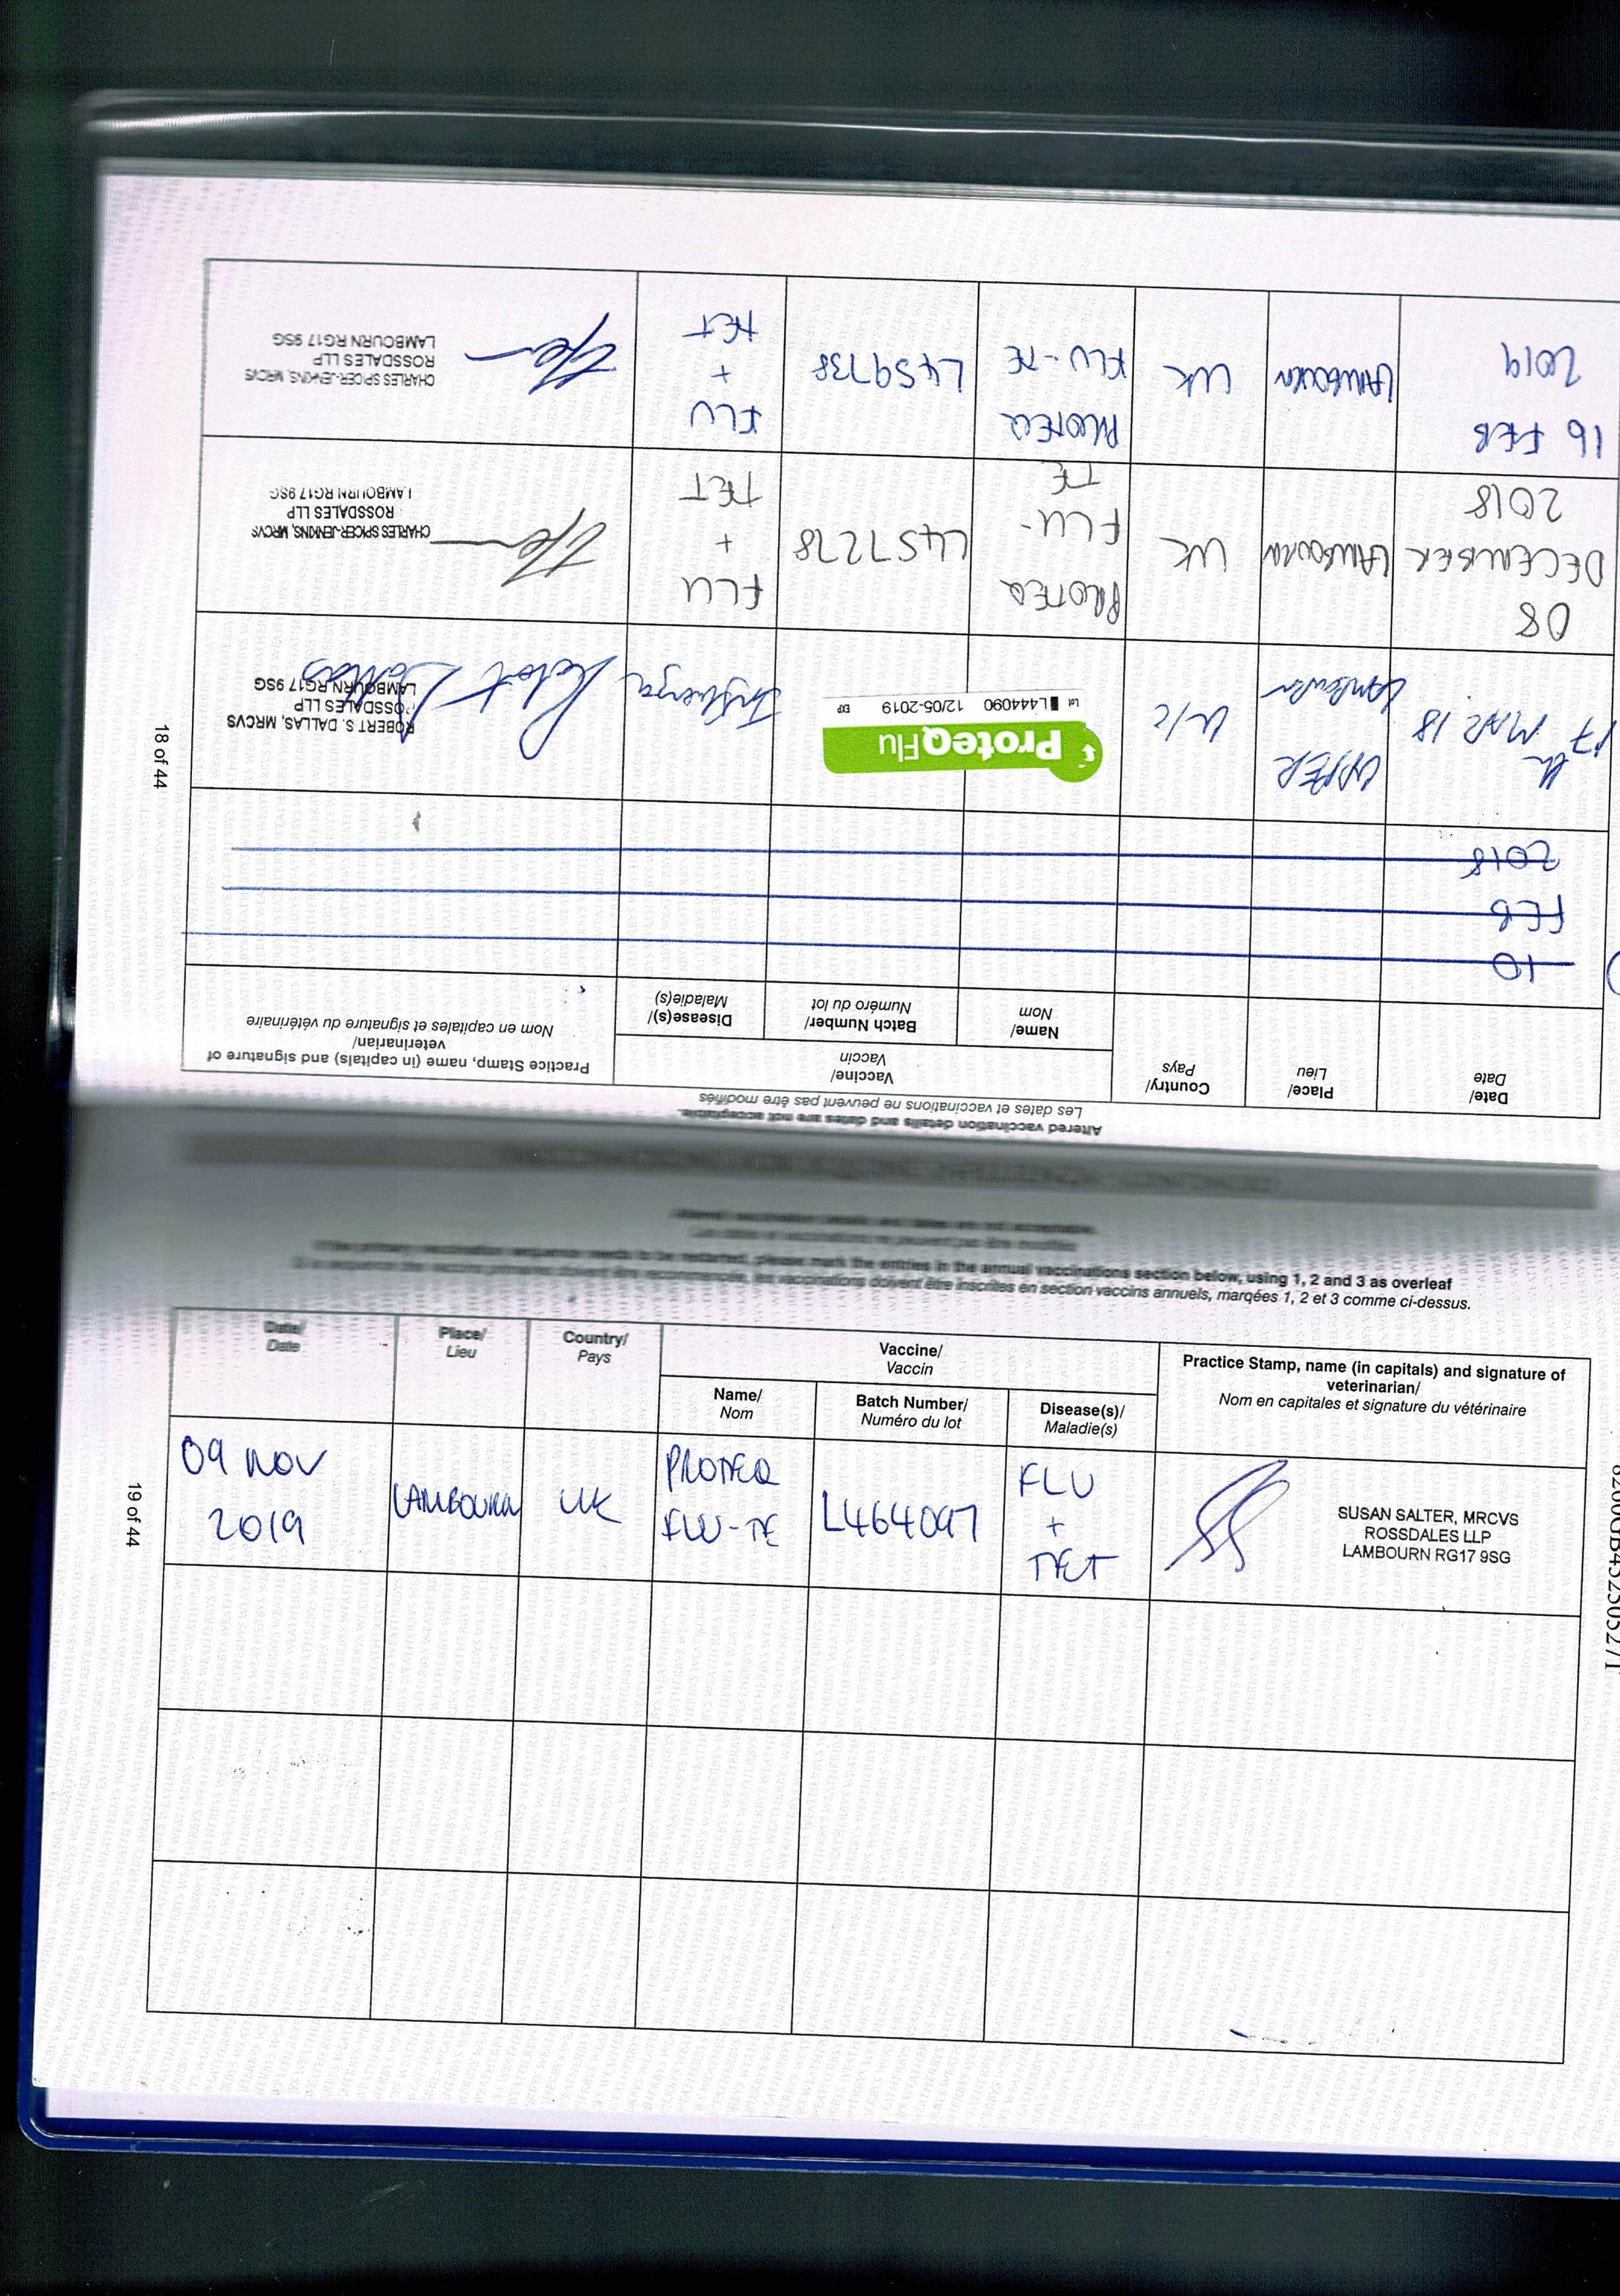 Altered vaccination details and dates are not acceptable.
Les dates et vaccinations ne peuvent pas être modifiés
Date/
Date
Place/
Lieu
Country/
Pays
Vaccine/
Vaccin
Name/
Nom
Batch Number/
Numéro du lot
Disease(s)/
Maladie(s)
Practice Stamp, name (in capitals) and signature of
veterinarian/
Nom en capitales et signature du vétérinaire
10
FEB
2018
17th MAR 18
UPPER
Lambourn
U/K
ProteqFlu
Lot L444090 12/05-2019 EXP
Influenza
ROBERT S. DALLAS, MRCVS
ROSSDALES LLP
LAMBOURN RG17 9SG
08
DECEMBER
2018
LAMBOURN
UK
PROTEQ
FLU-
TE
L457278
FLU
+
TET
CHARLES SPICER-JENKINS, MRCVS
ROSSDALES LLP
LAMBOURN RG17 9SG
16 FEB
2019
LAMBOURN
UK
PROTEQ
FLU-TE
L459738
FLU
+
TET
CHARLES SPICER-JENKINS, MRCVS
ROSSDALES LLP
LAMBOURN RG17 9SG
18 of 44
Altered vaccination details and dates are not acceptable.
Les dates et vaccinations ne peuvent pas être modifiés
If the primary vaccination sequence needs to be restarted, please mark the entries in the annual vaccinations section below, using 1, 2 and 3 as overleaf
les vaccinations doivent être inscrites en section vaccins annuels, marqées 1, 2 et 3 comme ci-dessus.
Date/
Date
Place/
Lieu
Country/
Pays
Vaccine/
Vaccin
Name/
Nom
Batch Number/
Numéro du lot
Disease(s)/
Maladie(s)
Practice Stamp, name (in capitals) and signature of
veterinarian/
Nom en capitales et signature du vétérinaire
09 NOV
2019
LAMBOURN
UK
PROTEQ
FLU-TE
L464097
FLU
+
TET
SUSAN SALTER, MRCVS
ROSSDALES LLP
LAMBOURN RG17 9SG
19 of 44